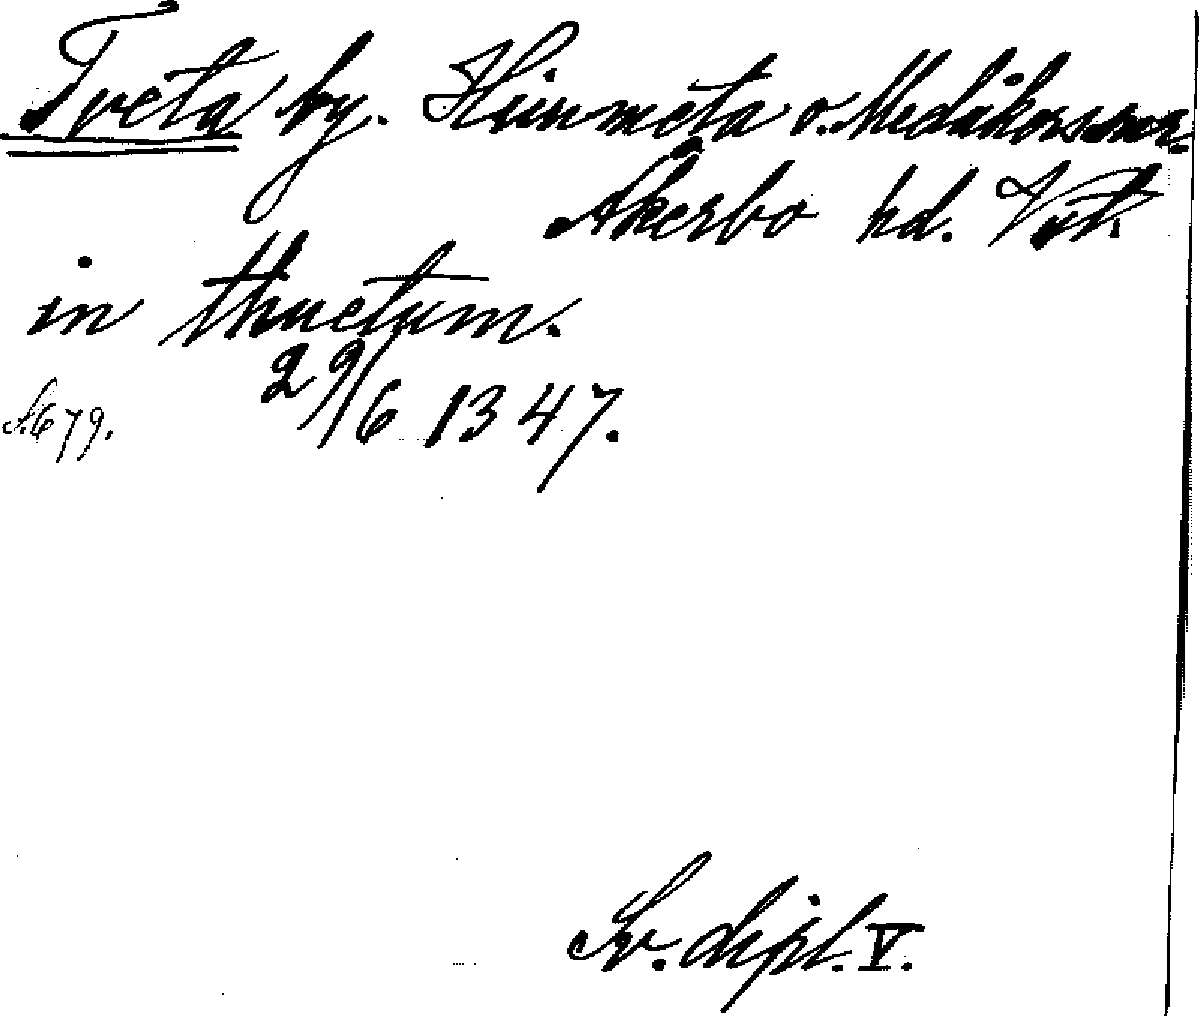 Tveta by. Himmeta o. Medåkers snr.
Åkerbo hd. Vstm.
in thuetum.
29/6 1347.
S. 679.
Sv. dipl. V.